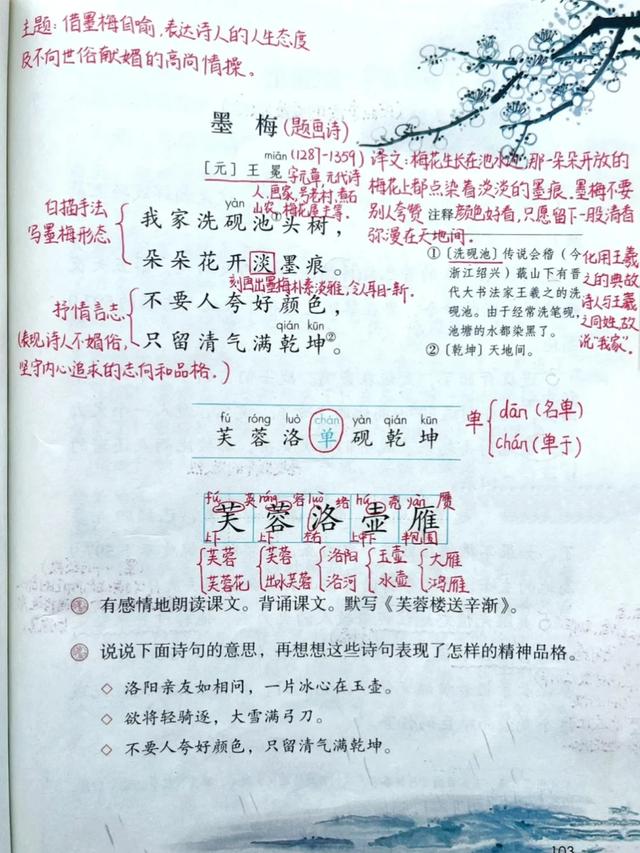 主题:借墨梅自喻,表达诗人的人生态度
及不向世俗献媚的高尚情操。
墨 梅(题画诗)
miǎn(1287-1359)
[元]王 冕
字元章,元代诗
人、画家,号老村、煮石
山农、梅花屋主等。
译文:梅花生长在池水边,那一朵朵开放的
梅花上都点染着淡淡的墨痕。墨梅不要
别人夸赞颜色好看,只愿留下一股清香
弥漫在天地间。
白描手法
写墨梅形态
yàn
我家洗砚池①头树,
朵朵花开淡墨痕
刻画出墨梅朴素淡雅,令人耳目一新。
抒情言志
(表现诗人不媚俗,
坚守内心追求的志向和品格。)
不要人夸好颜色,
qián kūn
只留清气满乾坤②。
注释
①〔洗砚池〕传说会稽(今
浙江绍兴)蕺山下有晋
代大书法家王羲之的洗
砚池。由于经常洗笔砚,
池塘的水都染黑了。
②〔乾坤〕天地间。
化用王羲
之的典故
诗人与王羲
之同姓,故
说“我家”。
fú róng luò chán yàn qián kūn
芙 蓉 洛 单 砚 乾 坤
单
dān(名单)
chán(单于)
fú 英 róng 容 luò 络 hú 壳 yàn 赝
芙 蓉 洛 壶 雁
上下 上下 左右 上中下 半包围
芙蓉 芙蓉 洛阳 玉壶 大雁
芙蓉花 出水芙蓉 洛河 冰壶 鸿雁
有感情地朗读课文。背诵课文。默写《芙蓉楼送辛渐》。
说说下面诗句的意思,再想想这些诗句表现了怎样的精神品格。
◇ 洛阳亲友如相问,一片冰心在玉壶。
◇ 欲将轻骑逐,大雪满弓刀。
◇ 不要人夸好颜色,只留清气满乾坤。
103